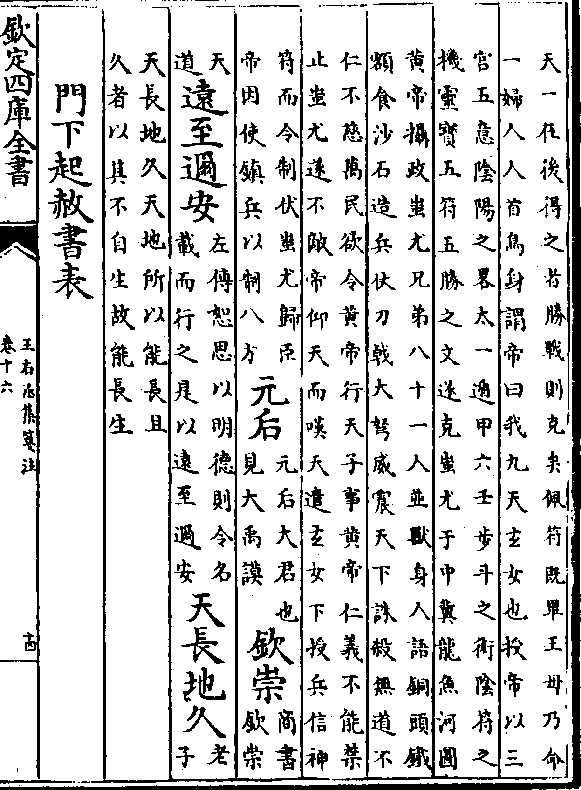 天一在後得之者勝戰則克矣佩符既畢王母乃命
一婦人人首鳥身謂帝曰我九天玄女也授帝以三
宮五意陰陽之畧太一遁甲六壬步斗之術陰符之
機靈寶五符五勝之文遂克蚩尤于中冀龍魚河圖
黄帝攝政蚩尤兄弟八十一人並獸身人語銅頭鐵
額食沙石造兵仗刀戟大弩威震天下誅殺無道不
仁不慈萬民欲令黄帝行天子事黄帝仁義不能禁
止蚩尤遂不敵帝仰天而嘆天遣玄女下授兵信神
符而令制伏蚩尤歸臣
帝因使鎮兵以制八方
元后
元后大君也
見大禹謨
欽崇
商書
欽崇
天
道
遠至邇安
左傳恕思以明德則令名
載而行之是以遠至邇安
天長地久
老
子
天長地久天地所以能長且
久者以其不自生故能長生
門下起赦書表
欽定四庫全書
王右丞集箋注
卷十六
十四